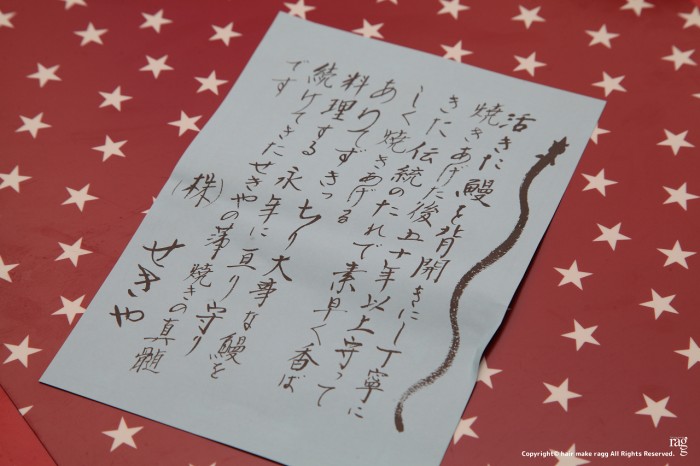 活きた鰻を背開きにし丁寧に
焼きあげた後五十年以上守って
きた伝統のたれで素早く香ば
しく焼きあげる
あわてずきっちり大事な鰻を
料理する永年に亘り守り
続けてきたせきやの蒲焼きの真髄
です
(株)せきや
ragg
Copyright© hair make ragg All Rights Reserved.